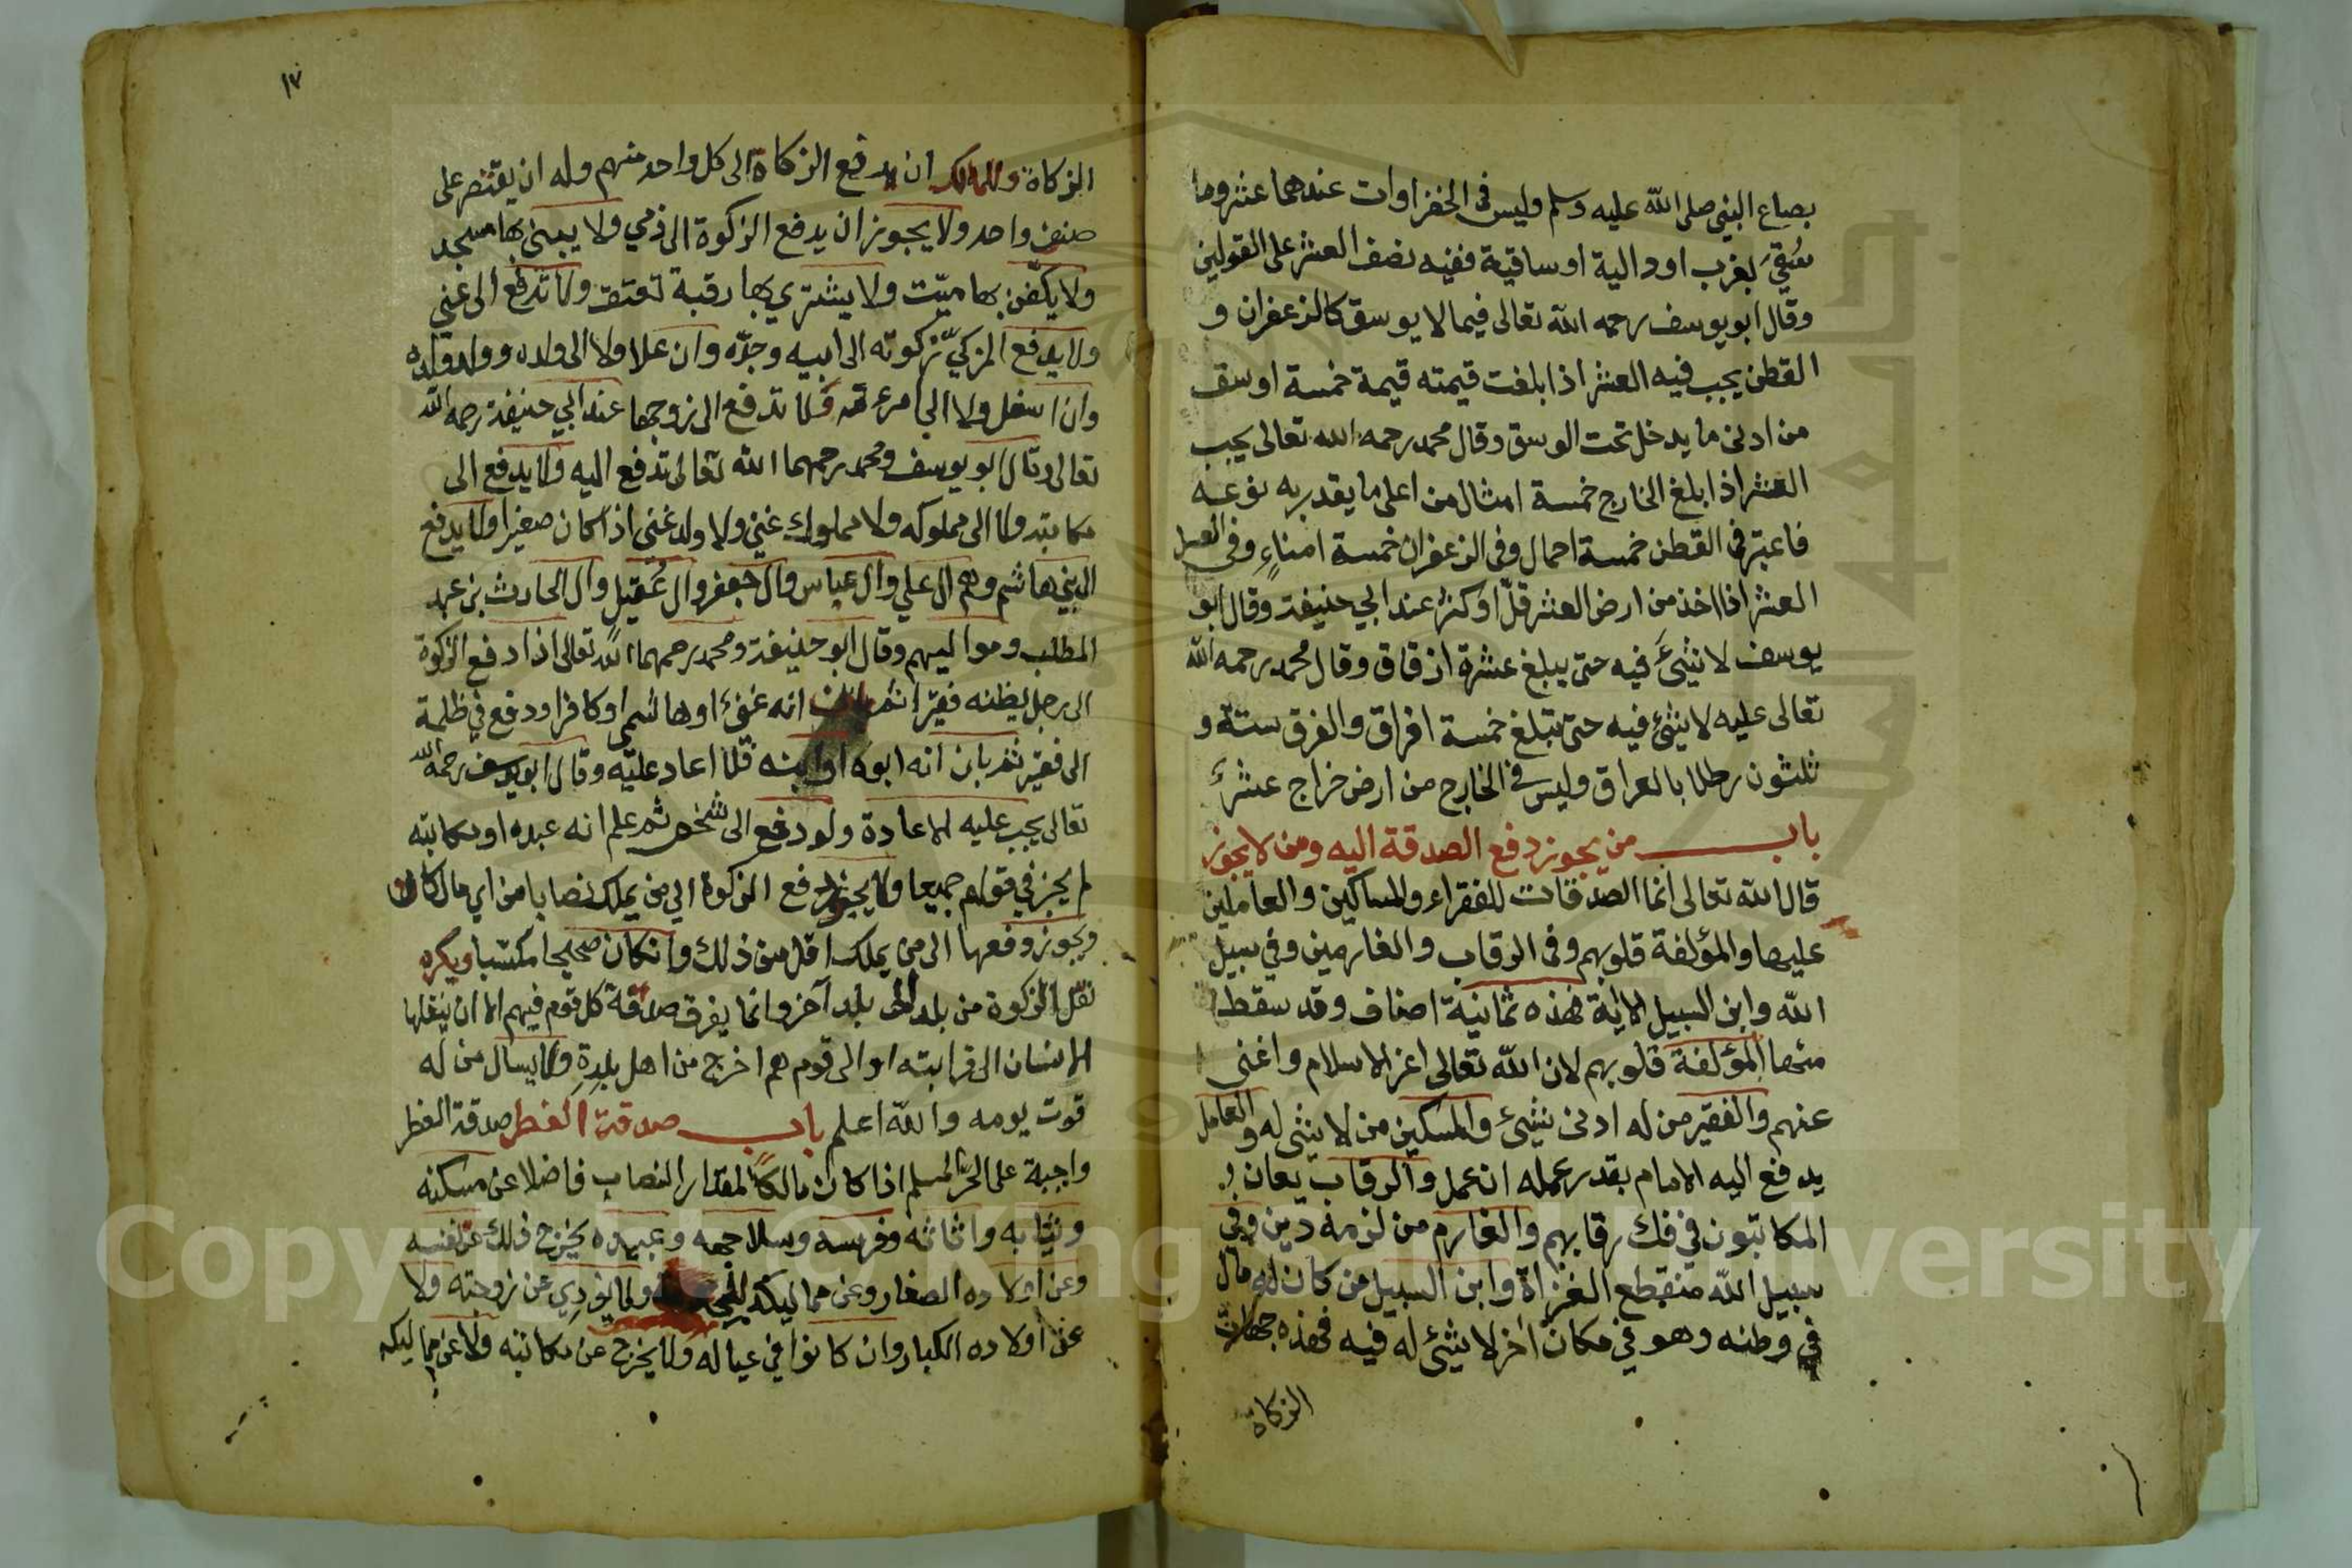 بصاع النبي صلى الله عليه وسلم وليس في الخضراوات عندهما عشر وما
سُقي بغرب او دالية او ساقية ففيه نصف العشر على القولين
وقال ابو يوسف رحمه الله تعالى فيما لا يوسق كالزعفران و
القطن يجب فيه العشر اذا بلغت قيمته قيمة خمسة اوسق
من ادنى ما يدخل تحت الوسق وقال محمد رحمه الله تعالى يجب
العشر اذا بلغ الخارج خمسة امثال من اعلى ما يقدر به نوعه
فاعتبر في القطن خمسة احمال وفي الزعفران خمسة امناءٍ وفي العسل
العشر اذا اخذ من ارض العشر قلّ او كثر عند ابي حنيفة وقال ابو
يوسف لا شئ فيه حتى يبلغ عشرة ازقاق وقال محمد رحمه الله
تعالى عليه لا شئ فيه حتى تبلغ خمسة افراق والفرق ستة و
ثلثون رطلا بالعراق وليس في الخارج من ارض خراج عشرٌ
باب من يجوز دفع الصدقة اليه ومن لا يجوز
قال الله تعالى انما الصدقات للفقراء والمساكين والعاملين
عليها والمؤلفة قلوبهم وفي الرقاب والغارمين وفي سبيل
الله وابن السبيل الاية فهذه ثمانية اصناف وقد سقط
منها المؤلفة قلوبهم لان الله تعالى اعز الاسلام واغنى
عنهم والفقير من له ادنى شئ والمسكين من لا شئ له والعامل
يدفع اليه الامام بقدر عمله ان عمل والرقاب يعان
المكاتبون في فك رقابهم والغارم من لزمه دين وفي
سبيل الله منقطع الغزاة وابن السبيل من كان له مال
في وطنه وهو في مكان اخر لا شئ له فيه فهذه جهات
الزكاة
١٧
الزكاة وللمالك ان يدفع الزكاة الى كل واحد منهم وله ان يقتصر على
صنف واحد ولا يجوز ان يدفع الزكوة الى ذمي ولا يبنى بها مسجد
ولا يكفّن بها ميّت ولا يشتري بها رقبة تعتق ولا تدفع الى غني
ولا يدفع المزكيّ زكوته الى ابيه وجدّه وان علا ولا الى ولده وولد ولده
وان اسفل ولا الى امرءته ولا تدفع الى زوجها عند ابي حنيفة رحمه الله
تعالى وقال ابو يوسف ومحمد رحمهما الله تعالى تدفع اليه ولا يدفع الى
مكاتبه ولا الى مملوكه ولا مملوك غني ولا ولد غنى اذا كان صغيرا ولا يدفع
الى بني هاشم وهم ال علي وال عباس وال جعفر وال عُقيل وال الحارث بن عبد
المطلب ومواليهم وقال ابو حنيفة ومحمد رحمهما الله تعالى اذا دفع الزكوة
الى رجل يظنه فقيرا ثم بان انه غنى او هاشمي او كافر او دفع في ظلمة
الى فقير ثم بان انه ابوه او ابنه فلا اعاد عليه وقال ابو يوسف رحمه الله
تعالى يجب عليه الاعادة ولو دفع الى شخص ثم علم انه عبده او مكاتبه
لم يجز في قولهم جميعا ولا يجوز دفع الزكوة الى من يملك نصابا من اي مال كان
ويجوز دفعها الى من يملك اقل من ذلك وانكان صحيحا مكتسبا ويكره
نقل الزكوة من بلد الى بلد آخر وانما يفرق صدقة كل قوم فيهم الا ان ينقلها
الانسان الى قرابته او الى قوم هم اخرج من اهل بلدةٍ ولا يسال من له
قوت يومه والله اعلم باب صدقة الفطر صدقة الفطر
واجبة على الحرّ المسلم اذا كان مالكًا لمقدار النصاب فاضلا عن مسكنه
وثيابه واثاثه وفرسه وسلاحه وعبيده يخرج ذلك عن نفسه
وعن اولاده الصغار وعن مماليكه ولا يؤدي عن زوجته ولا
عن اولاده الكبار وان كانوا في عياله ولا يخرج عن مكاتبه ولا عن مماليكه
Copyright © King Saud University